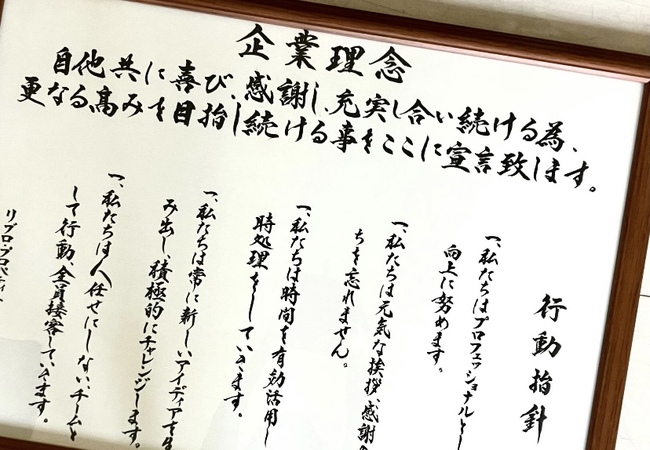 企業理念
自他共に喜び、感謝し、充実し合い続ける為、
更なる高みを目指し続ける事をここに宣言致します。
行動指針
一、私たちはプロフェッショナルとし
向上に努めます。
一、私たちは元気な挨拶、感謝の
ちを忘れません。
一、私たちは時間を有効活用し
時処理をしていきます。
一、私たちは常に新しいアイディアを生
み出し、積極的にチャレンジします。
一、私たちは人任せにしない、チームと
して行動、全員接客していきます。
リブロ・プロパティ